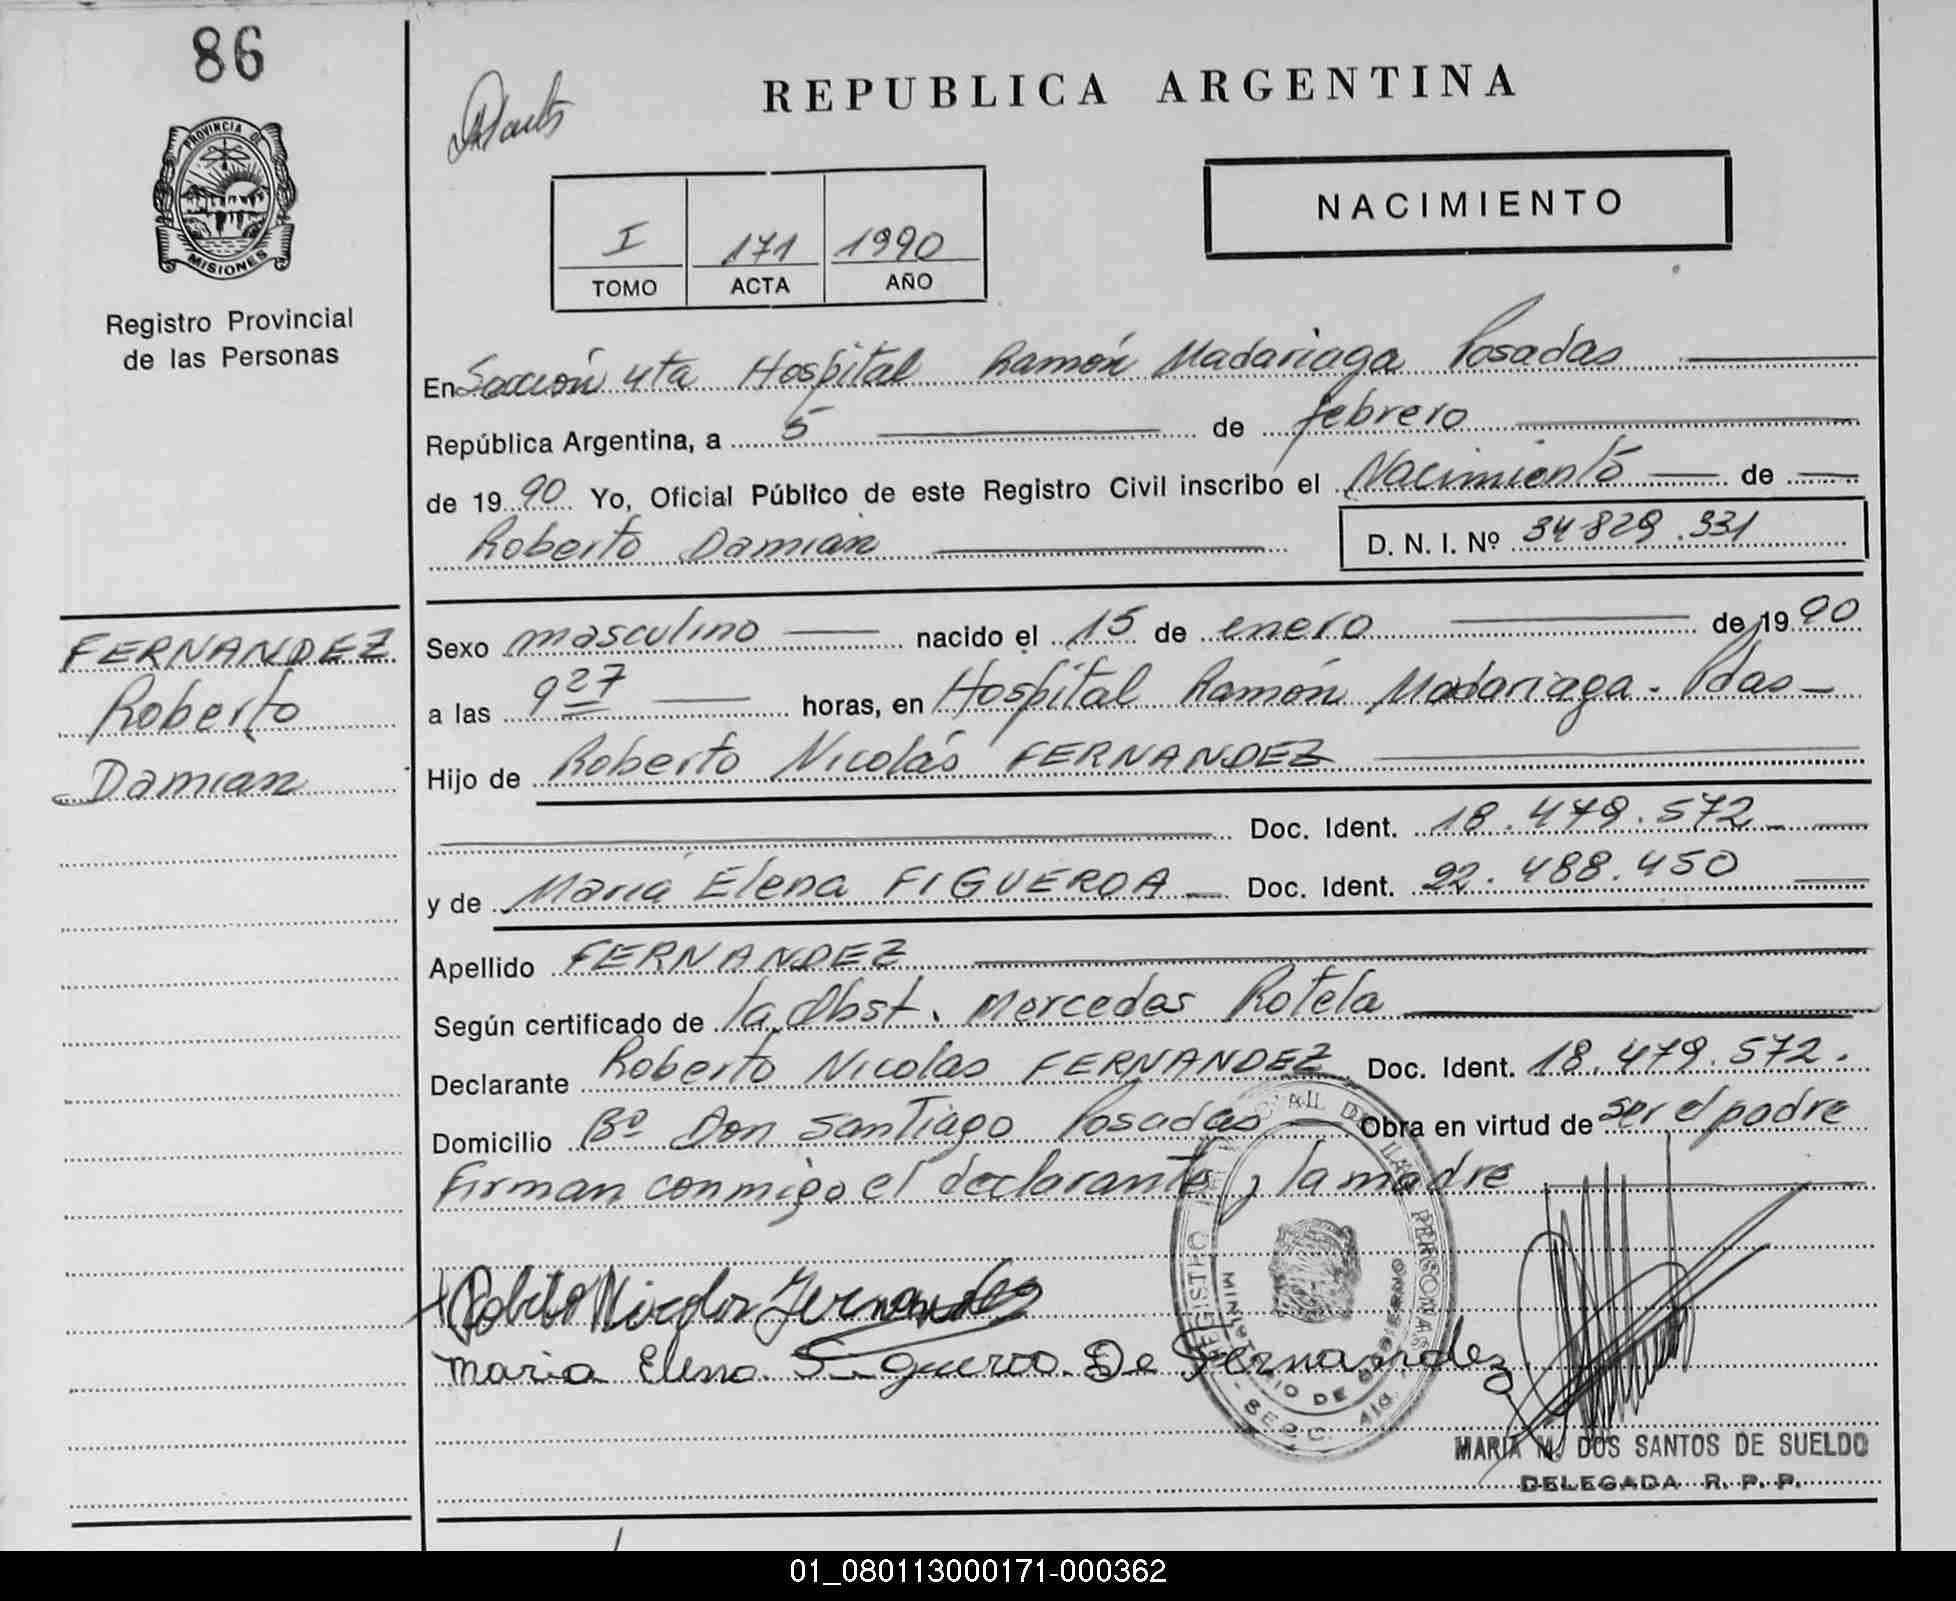 86
PROVINCIA DE
MISIONES
Registro Provincial
de las Personas
FERNANDEZ
Roberto
Damian
REPUBLICA ARGENTINA
NACIMIENTO
I 171 1990
TOMO ACTA AÑO
En Sección 4ta Hospital Ramón Madariaga Posadas
República Argentina, a 5 de febrero
de 1990 Yo, Oficial Público de este Registro Civil inscribo el Nacimiento de
Roberto Damián D. N. I. Nº 34 829.331
Sexo masculino nacido el 15 de enero de 1990
a las 9 27 horas, en Hospital Ramón Madariaga. Pdas
Hijo de Roberto Nicolás FERNANDEZ
Doc. Ident. 18.479.572
y de María Elena FIGUEROA Doc. Ident. 22.488.450
Apellido FERNANDEZ
Según certificado de la Obst. Mercedes Rotela
Declarante Roberto Nicolas FERNANDEZ Doc. Ident. 18.479.572.
Domicilio Bº Don Santiago Posadas Obra en virtud de ser el padre
Firman conmigo el declarante y la madre
Roberto Nicolas Fernandez
Maria Elena Figueroa De Fernandez
REGISTRO DE LAS PERSONAS
MINISTERIO DE GOBIERNO
MARIA M. DOS SANTOS DE SUELDO
DELEGADA R. P. P.
01_080113000171-000362